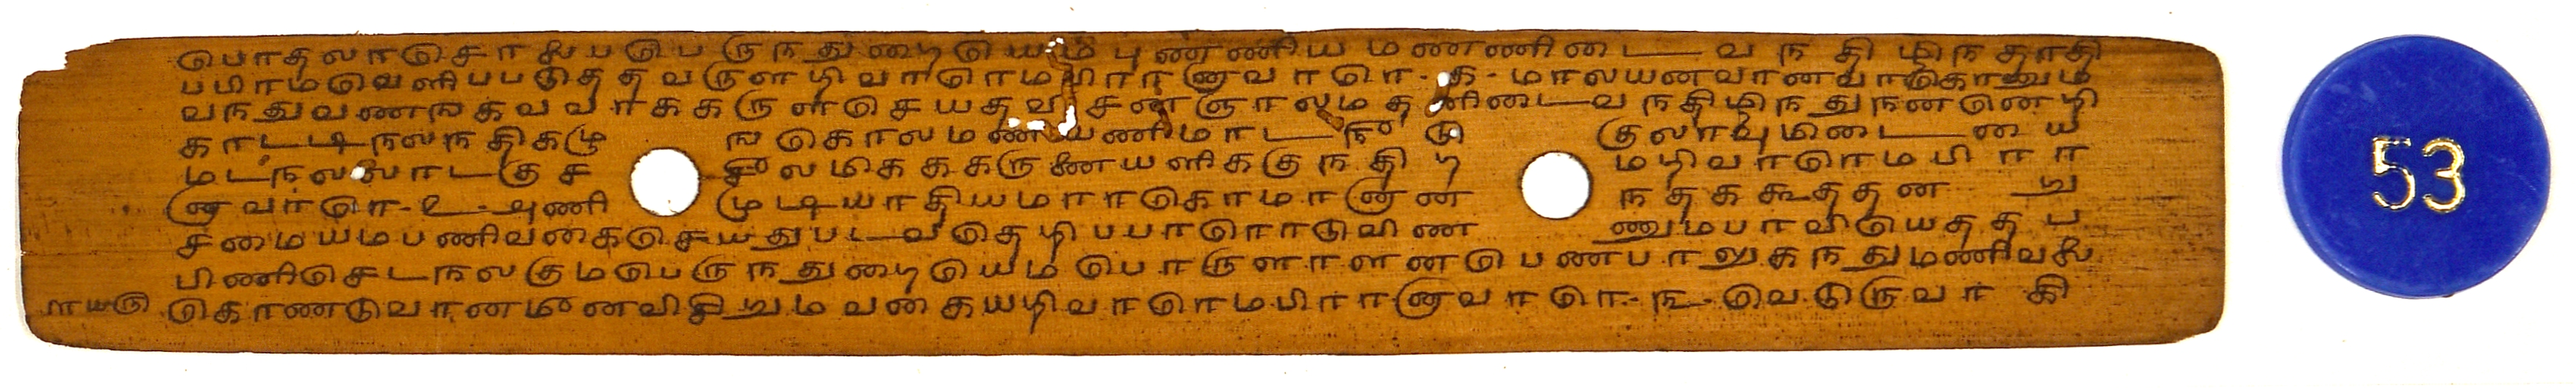 பொதலாசொலைபபெருநதுறையெமபுணணியமணணிடைவநதிழிநதாதி
பபிரமவெளிபபடுததவருளறிவாரெமபிரானாவாரெ-க-மாலயனவானவரகொனும
வநதுவணஙகவவரககருளசெயதவீசனஞாலமதனிடைவநதிழிநதுநனனெறி
காட்டிநலநதிகழுஙகொலமணியணிமாடநீடுகுலாவுமிடையை
மடநலலாடகுசசீலமிகககருணையளிககுநதிறமறிவாரெமபிரா
னாவாரெ-உ-அணிமுடியாதியமரரகொமானானநதககூததனறு
சமையமபணிவகைசெயதுபடவதெறிபபாரொடுவிணணுமபரவியெததப
பிணிகெடநலகுமபெருநதுறையெமபெரருளாளனபெணபாலுகநதுமணிவலை
ளயரு கொணடுவானமீனவிசிறுமவகையறிவாரெமபிரானாவாரெ-ங-வெடுருவாகி
53